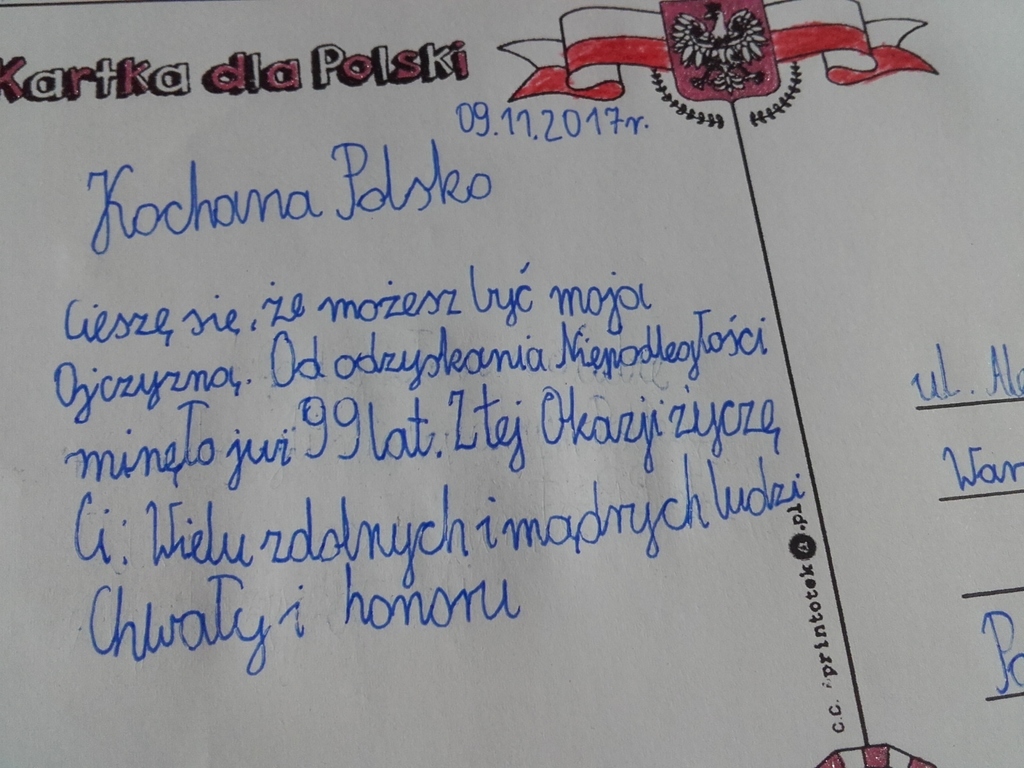 Kartka dla Polski
09.11.2017r.
Kochana Polsko
Cieszę się, że możesz być moja
Ojczyzną. Od odzyskania Niepodległości
minęło już 99 lat. Z tej Okazji życzę
Ci: Wielu zdolnych i mądrych ludzi
Chwały i honoru
ul.
printoteka.pl